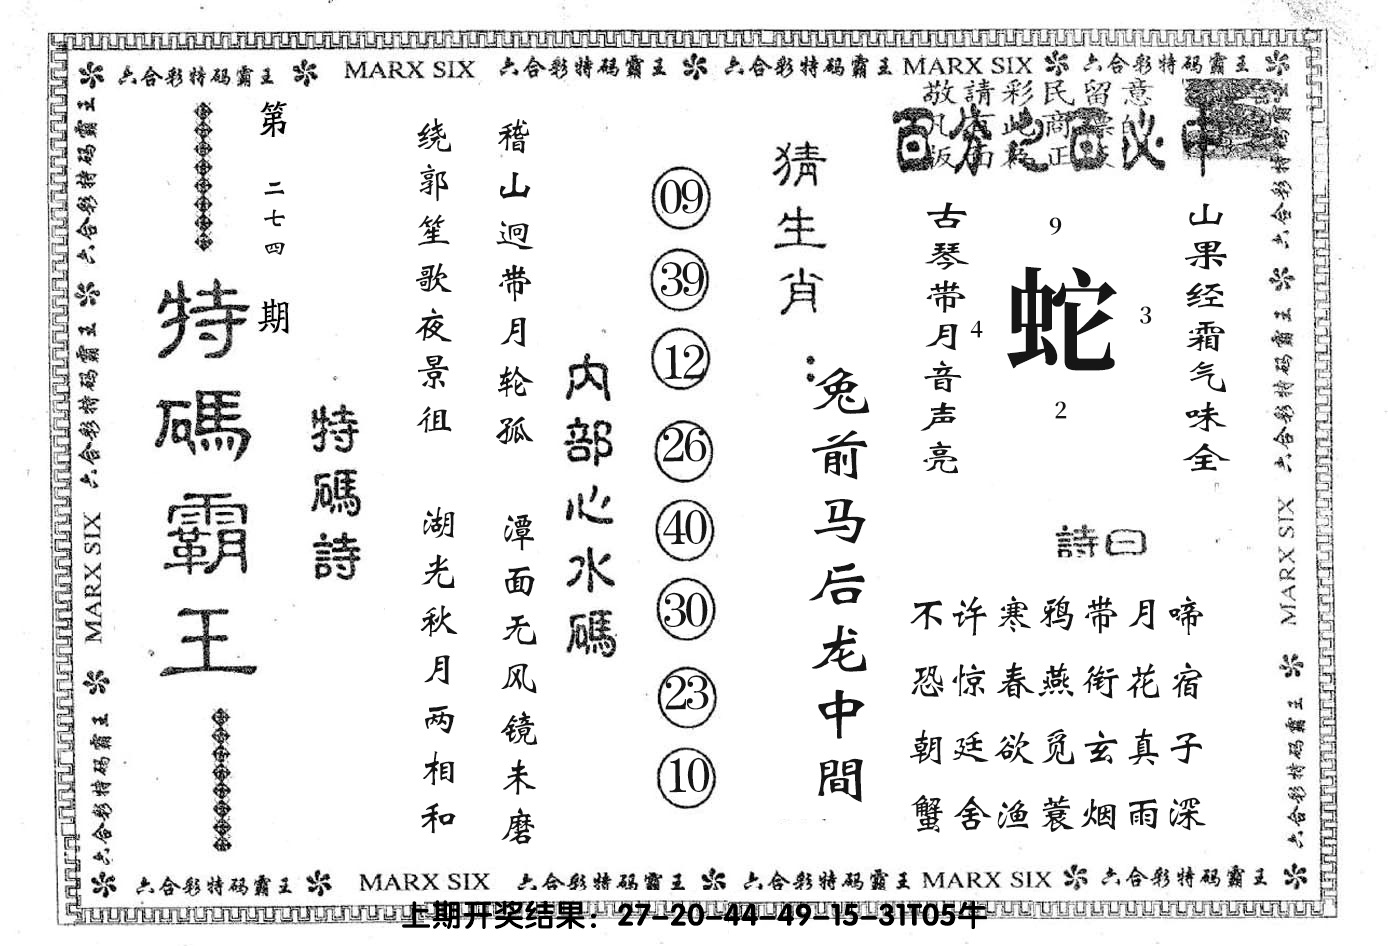 六合彩特码霸王 MARX SIX 六合彩特码霸王 六合彩特码霸王 MARX SIX 六合彩特码霸王
敬請彩民留意
百分之百必中
山果经霜气味全
古琴带月音声亮
9
4
蛇
3
2
詩曰
不许寒鸦带月啼
恐惊春燕衔花宿
朝廷欲觅玄真子
蟹舍渔蓑烟雨深
猜生肖：
兔前马后龙中間
09
39
12
26
40
30
23
10
内部心水碼
稽山迥带月轮孤
潭面无风镜未磨
绕郭笙歌夜景徂
湖光秋月两相和
特碼詩
第二七四期
特碼霸王
六合彩特码霸王 六合彩特码霸王 MARX SIX 六合彩特码霸王
六合彩特码霸王 六合彩特码霸王 MARX SIX 六合彩特码霸王
六合彩特码霸王 MARX SIX 六合彩特码霸王 六合彩特码霸王 MARX SIX 六合彩特码霸王
上期开奖结果：27-20-44-49-15-31T05牛